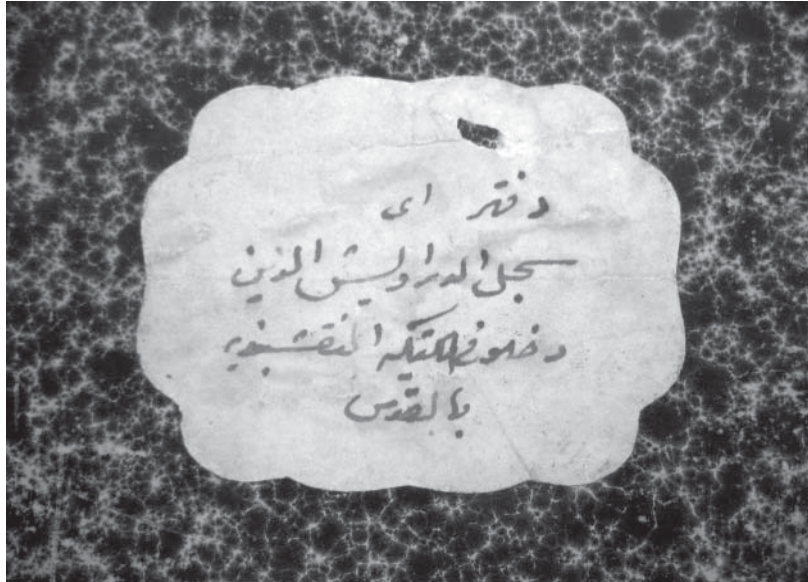 دفتر اى
سجل الدراويش الذين
دخلو في التكيه النقشبنديه
بالقدس